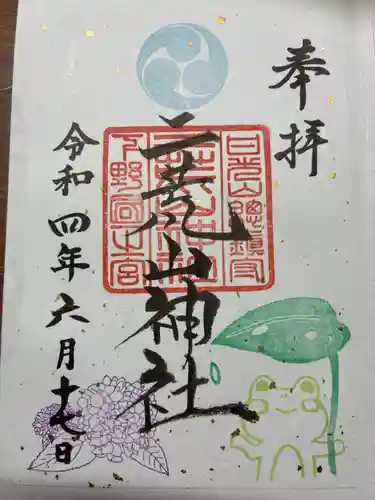 奉拝
二荒山神社
日光山總鎮守
下野國一宮
令和四年六月十七日